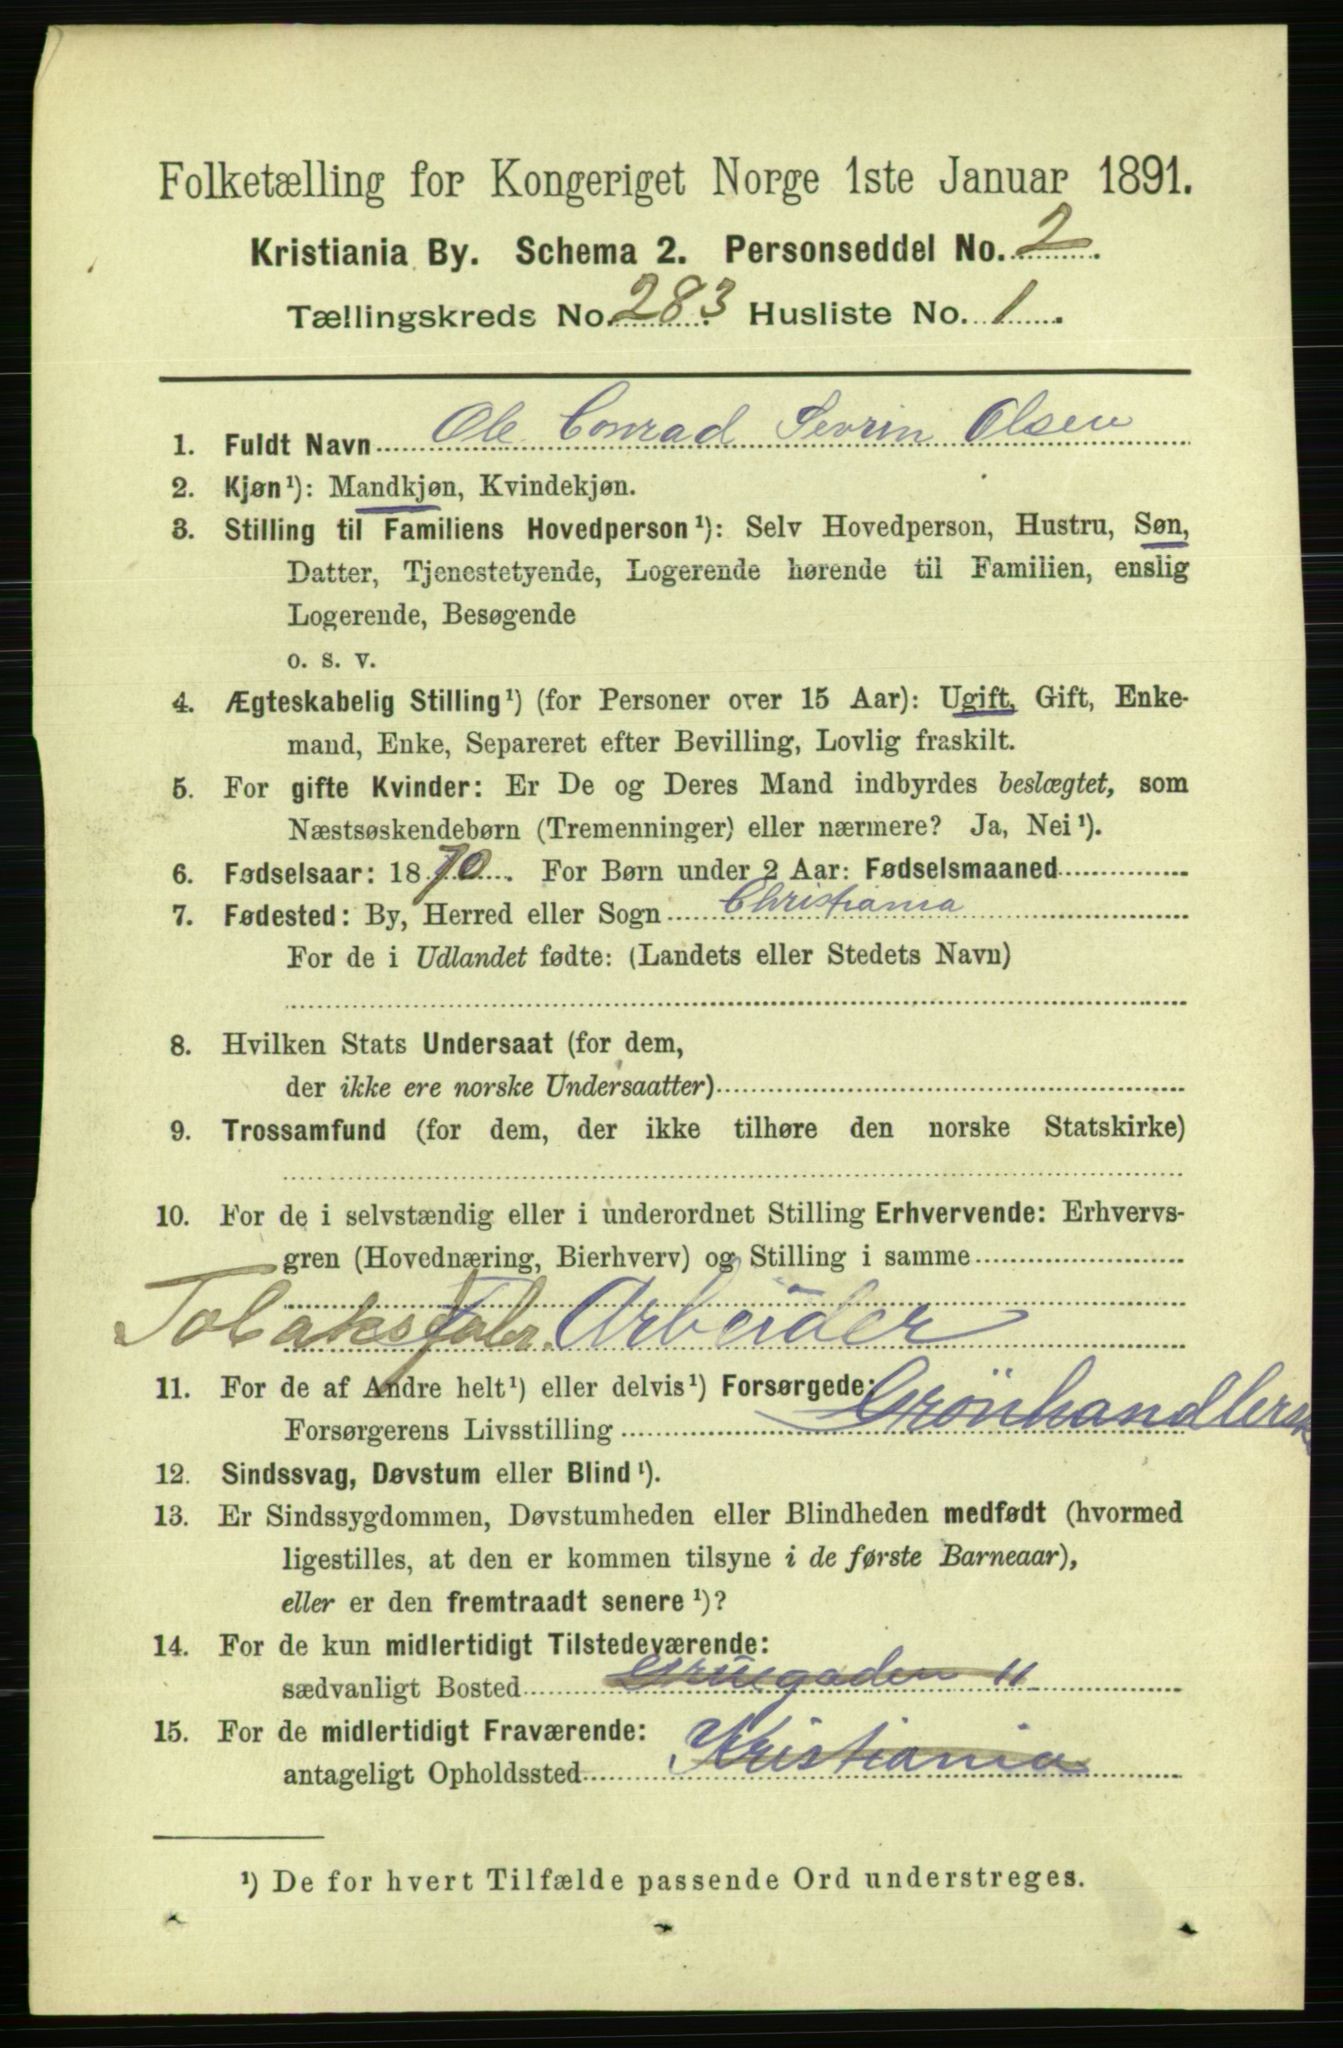 Folketælling for Kongeriget Norge 1ste Januar 1891.
Kristiania By. Schema 2. Personseddel No. 2
Tællingskreds No. 283 Husliste No. 1
1. Fuldt Navn Ole Conrad Sevrin Olsen
2. Kjøn¹): Mandkjøn, Kvindekjøn.
3. Stilling til Familiens Hovedperson¹): Selv Hovedperson, Hustru, Søn,
Datter, Tjenestetyende, Logerende hørende til Familien, enslig
Logerende, Besøgende
o. s. v.
4. Ægteskabelig Stilling¹) (for Personer over 15 Aar): Ugift, Gift, Enke-
mand, Enke, Separeret efter Bevilling, Lovlig fraskilt.
5. For gifte Kvinder: Er De og Deres Mand indbyrdes beslægtet, som
Næstsøskendebørn (Tremenninger) eller nærmere? Ja, Nei¹).
6. Fødselsaar: 1870. For Børn under 2 Aar: Fødselsmaaned
7. Fødested: By, Herred eller Sogn Christiania
For de i Udlandet fødte: (Landets eller Stedets Navn)
8. Hvilken Stats Undersaat (for dem,
der ikke ere norske Undersaatter)
9. Trossamfund (for dem, der ikke tilhøre den norske Statskirke)
10. For de i selvstændig eller i underordnet Stilling Erhvervende: Erhvervs-
gren (Hovednæring, Bierhverv) og Stilling i samme
Tobaksfabr. Arbeider
11. For de af Andre helt¹) eller delvis¹) Forsørgede:
Forsørgerens Livsstilling Grönhandlersk
12. Sindssvag, Døvstum eller Blind¹).
13. Er Sindssygdommen, Døvstumheden eller Blindheden medfødt (hvormed
ligestilles, at den er kommen tilsyne i de første Barneaar),
eller er den fremtraadt senere¹)?
14. For de kun midlertidigt Tilstedeværende:
sædvanligt Bosted Gruegaden 11
15. For de midlertidigt Fraværende:
antageligt Opholdssted Kristiania
¹) De for hvert Tilfælde passende Ord understreges.